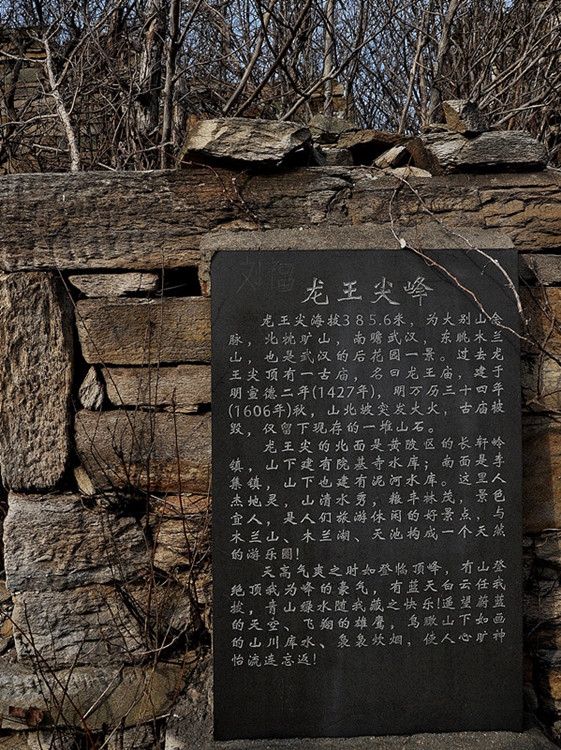 刘福
龙王尖峰
龙王尖峰海拔385.6米，为大别山余
脉，北枕矿山，南瞻武汉，东眺木兰
山，也是武汉的后花园一景。过去龙
王尖顶有一古庙，名曰龙王庙，建于
明宣德二年(1427年)，明万历三十四年
(1606年)秋，山北坡突发火火，古庙被
毁，仅留下现存的一堆山石。
龙王尖的北面是黄陂区的长轩岭
镇，山下建有院基寺水库；南面是李
集镇，山下也建有泥河水库。这里人
杰地灵，山清水秀，粮丰林茂，景色
宜人，是人们旅游休闲的好景点，与
木兰山、木兰湖、天池构成一个天然
的游乐圈！
天高气爽之时如登临顶峰，有山登
绝顶我为峰的豪气，有蓝天白云任我
拔，青山绿水随我藏之快乐！遥望蔚蓝
的天空、飞翔的雄鹰，鸟瞰山下如画
的山川库水、袅袅炊烟，使人心旷神
怡流连忘返！